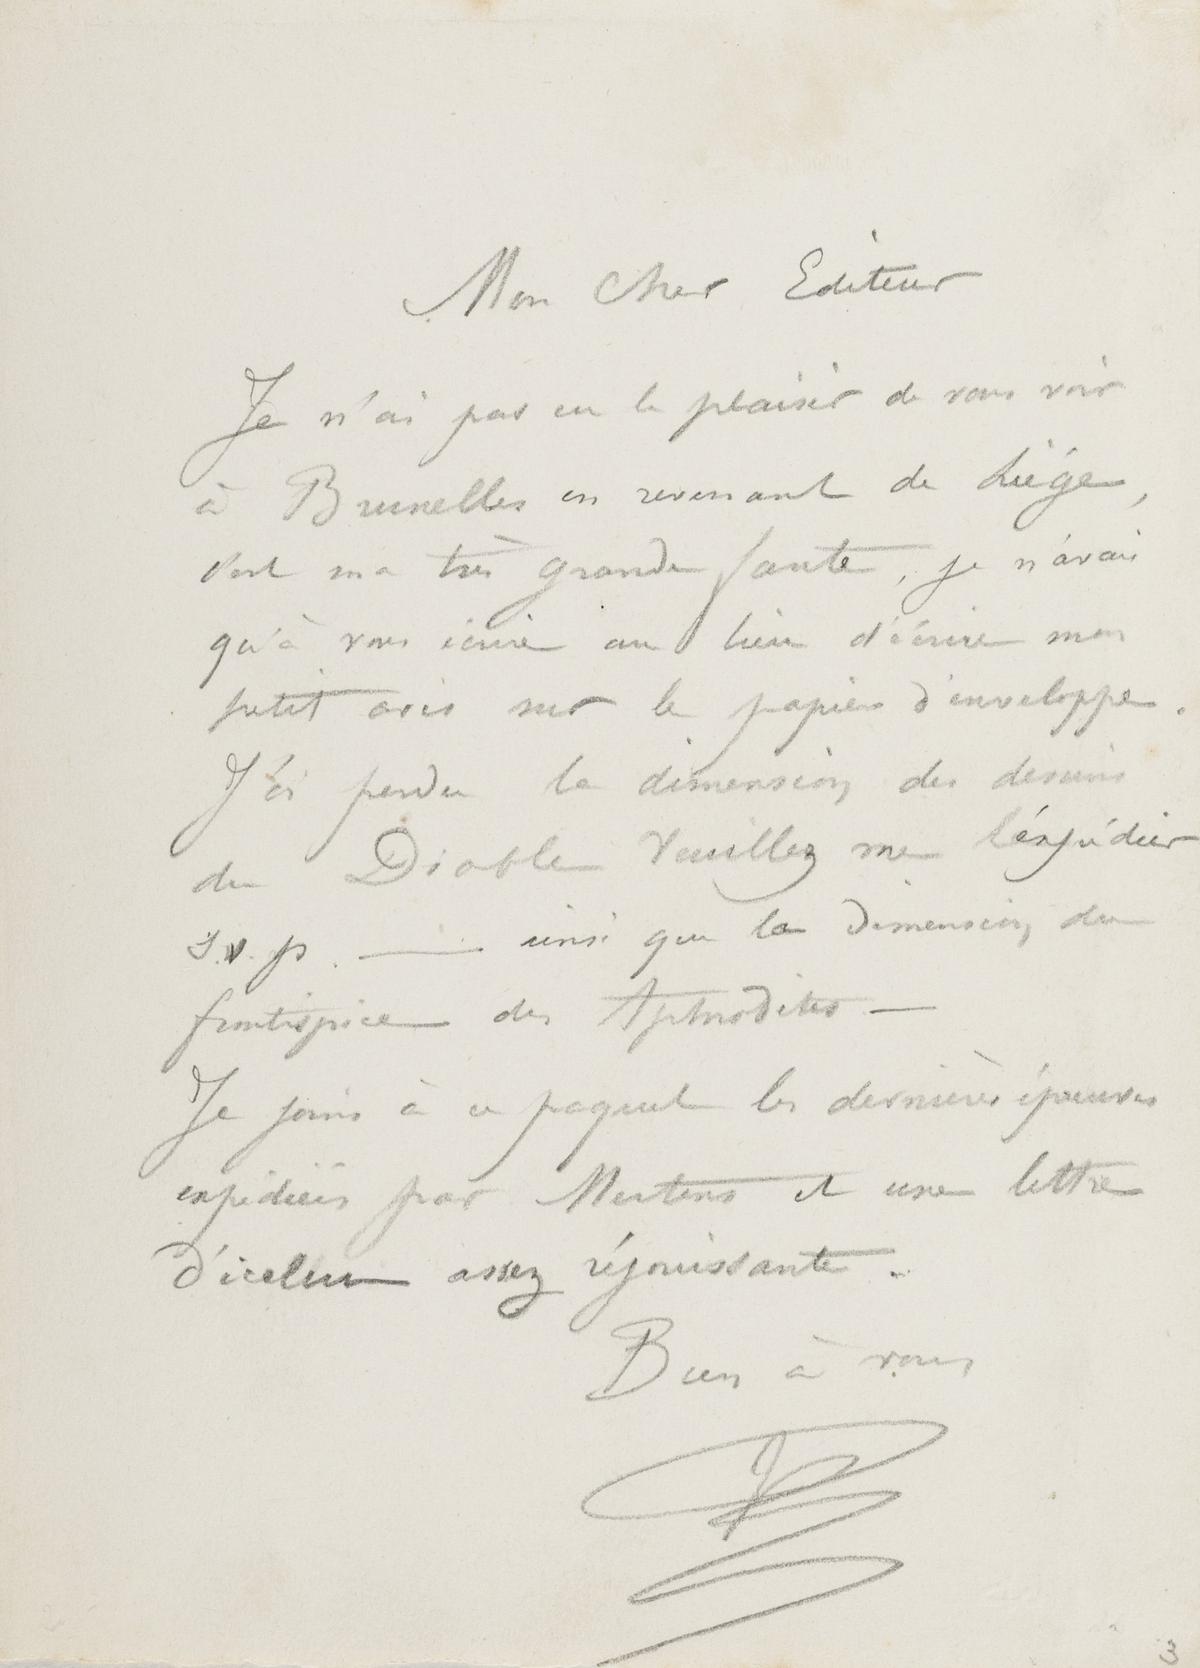 Mon Cher Editeur
Je n'ai pas eu le plaisir de vous voir
à Bruxelles en revenant de Liége,
c'est ma très grande faute, je n'avais
qu'à vous écrire au lieu d'écrire mon
petit avis sur le papier d'enveloppe.
J'ai perdu la dimension des dessins
du Diable Veuillez me l'éxpédier
s.v.p. — ainsi que la dimension du
frontispice des Aphrodites —
Je joins à ce paquet les dernières épreuves
expédiées par Mertens et une lettre
d'icelui assez réjouissante.
Bien à vous
3